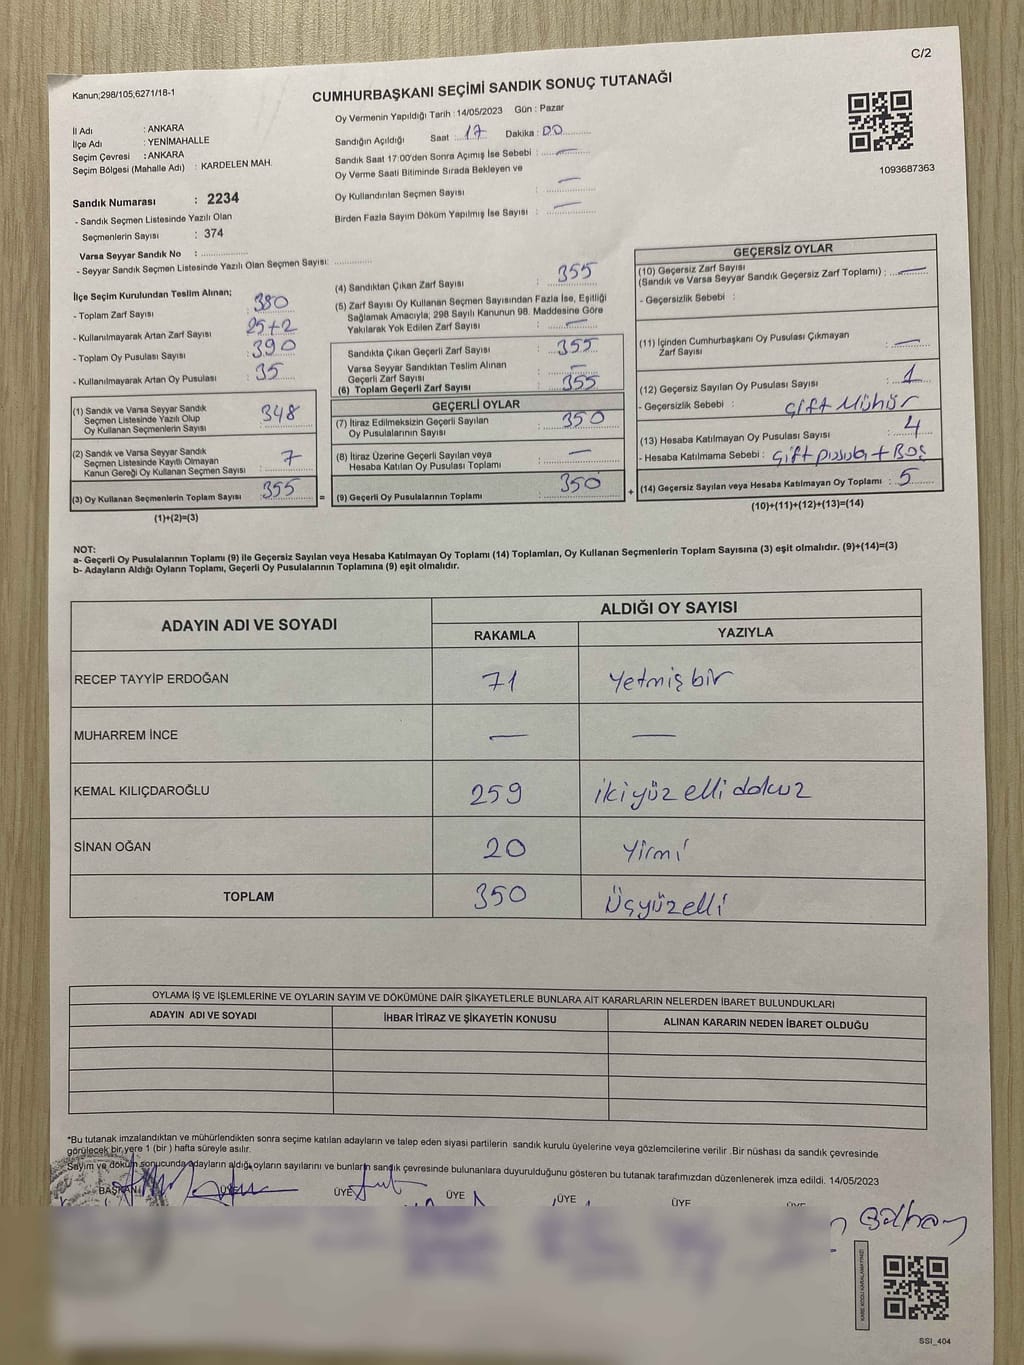 C/2
Kanun;298/105,6271/18-1
CUMHURBAŞKANI SEÇİMİ SANDIK SONUÇ TUTANAĞI
İl Adı : ANKARA
İlçe Adı : YENİMAHALLE
Seçim Çevresi : ANKARA
Seçim Bölgesi (Mahalle Adı) : KARDELEN MAH.
Sandık Numarası : 2234
- Sandık Seçmen Listesinde Yazılı Olan
Seçmenlerin Sayısı : 374
Varsa Seyyar Sandık No :
- Seyyar Sandık Seçmen Listesinde Yazılı Olan Seçmen Sayısı:
Oy Vermenin Yapıldığı Tarih : 14/05/2023 Gün : Pazar
Sandığın Açıldığı Saat : 17 Dakika : 00
Sandık Saat 17:00'den Sonra Açımış İse Sebebi : —
Oy Verme Saati Bitiminde Sırada Bekleyen ve
Oy Kullandırılan Seçmen Sayısı : —
Birden Fazla Sayım Döküm Yapılmış İse Sayısı : —
1093687363
İlçe Seçim Kurulundan Teslim Alınan;
- Toplam Zarf Sayısı : 380
- Kullanılmayarak Artan Zarf Sayısı : 25+2
- Toplam Oy Pusulası Sayısı : 390
- Kullanılmayarak Artan Oy Pusulası : 35
(1) Sandık ve Varsa Seyyar Sandık
Seçmen Listesinde Yazılı Olup
Oy Kullanan Seçmenlerin Sayısı : 348
(2) Sandık ve Varsa Seyyar Sandık
Seçmen Listesinde Kayıtlı Olmayan
Kanun Gereği Oy Kullanan Seçmen Sayısı : 7
(3) Oy Kullanan Seçmenlerin Toplam Sayısı : 355 =
(1)+(2)=(3)
(4) Sandıktan Çıkan Zarf Sayısı : 355
(5) Zarf Sayısı Oy Kullanan Seçmen Sayısından Fazla İse, Eşitliği
Sağlamak Amacıyla; 298 Sayılı Kanunun 98. Maddesine Göre
Yakılarak Yok Edilen Zarf Sayısı : —
Sandıkta Çıkan Geçerli Zarf Sayısı : 355
Varsa Seyyar Sandıktan Teslim Alınan
Geçerli Zarf Sayısı : —
(6) Toplam Geçerli Zarf Sayısı : 355
GEÇERLİ OYLAR
(7) İtiraz Edilmeksizin Geçerli Sayılan
Oy Pusulalarının Sayısı : 350
(8) İtiraz Üzerine Geçerli Sayılan veya
Hesaba Katılan Oy Pusulası Toplamı : —
(9) Geçerli Oy Pusulalarının Toplamı : 350 +
GEÇERSİZ OYLAR
(10) Geçersiz Zarf Sayısı
(Sandık ve Varsa Seyyar Sandık Geçersiz Zarf Toplamı) ; —
- Geçersizlik Sebebi :
(11) İçinden Cumhurbaşkanı Oy Pusulası Çıkmayan
Zarf Sayısı : —
(12) Geçersiz Sayılan Oy Pusulası Sayısı : 1
- Geçersizlik Sebebi : Çift Mühür
(13) Hesaba Katılmayan Oy Pusulası Sayısı : 4
- Hesaba Katılmama Sebebi : Çift pusula + Boş
(14) Geçersiz Sayılan veya Hesaba Katılmayan Oy Toplamı : 5
(10)+(11)+(12)+(13)=(14)
NOT:
a- Geçerli Oy Pusulalarının Toplamı (9) ile Geçersiz Sayılan veya Hesaba Katılmayan Oy Toplamı (14) Toplamları, Oy Kullanan Seçmenlerin Toplam Sayısına (3) eşit olmalıdır. (9)+(14)=(3)
b- Adayların Aldığı Oyların Toplamı, Geçerli Oy Pusulalarının Toplamına (9) eşit olmalıdır.
ADAYIN ADI VE SOYADI ALDIĞI OY SAYISI
RAKAMLA YAZIYLA
RECEP TAYYİP ERDOĞAN 71 Yetmiş bir
MUHARREM İNCE — —
KEMAL KILIÇDAROĞLU 259 iki yüz elli dokuz
SİNAN OĞAN 20 Yirmi
TOPLAM 350 Üçyüzelli
OYLAMA İŞ VE İŞLEMLERİNE VE OYLARIN SAYIM VE DÖKÜMÜNE DAİR ŞİKAYETLERLE BUNLARA AİT KARARLARIN NELERDEN İBARET BULUNDUKLARI
ADAYIN ADI VE SOYADI İHBAR İTİRAZ VE ŞİKAYETİN KONUSU ALINAN KARARIN NEDEN İBARET OLDUĞU
*Bu tutanak imzalandıktan ve mühürlendikten sonra seçime katılan adayların ve talep eden siyasi partilerin sandık kurulu üyelerine veya gözlemcilerine verilir .Bir nüshası da sandık çevresinde
görülecek bir yere 1 (bir ) hafta süreyle asılır.
Sayım ve döküm sonucunda adayların aldığı oyların sayılarını ve bunların sandık çevresinde bulunanlara duyurulduğunu gösteren bu tutanak tarafımızdan düzenlenerek imza edildi. 14/05/2023
BAŞKAN ÜYE ÜYE ÜYE ÜYE
SSI_404